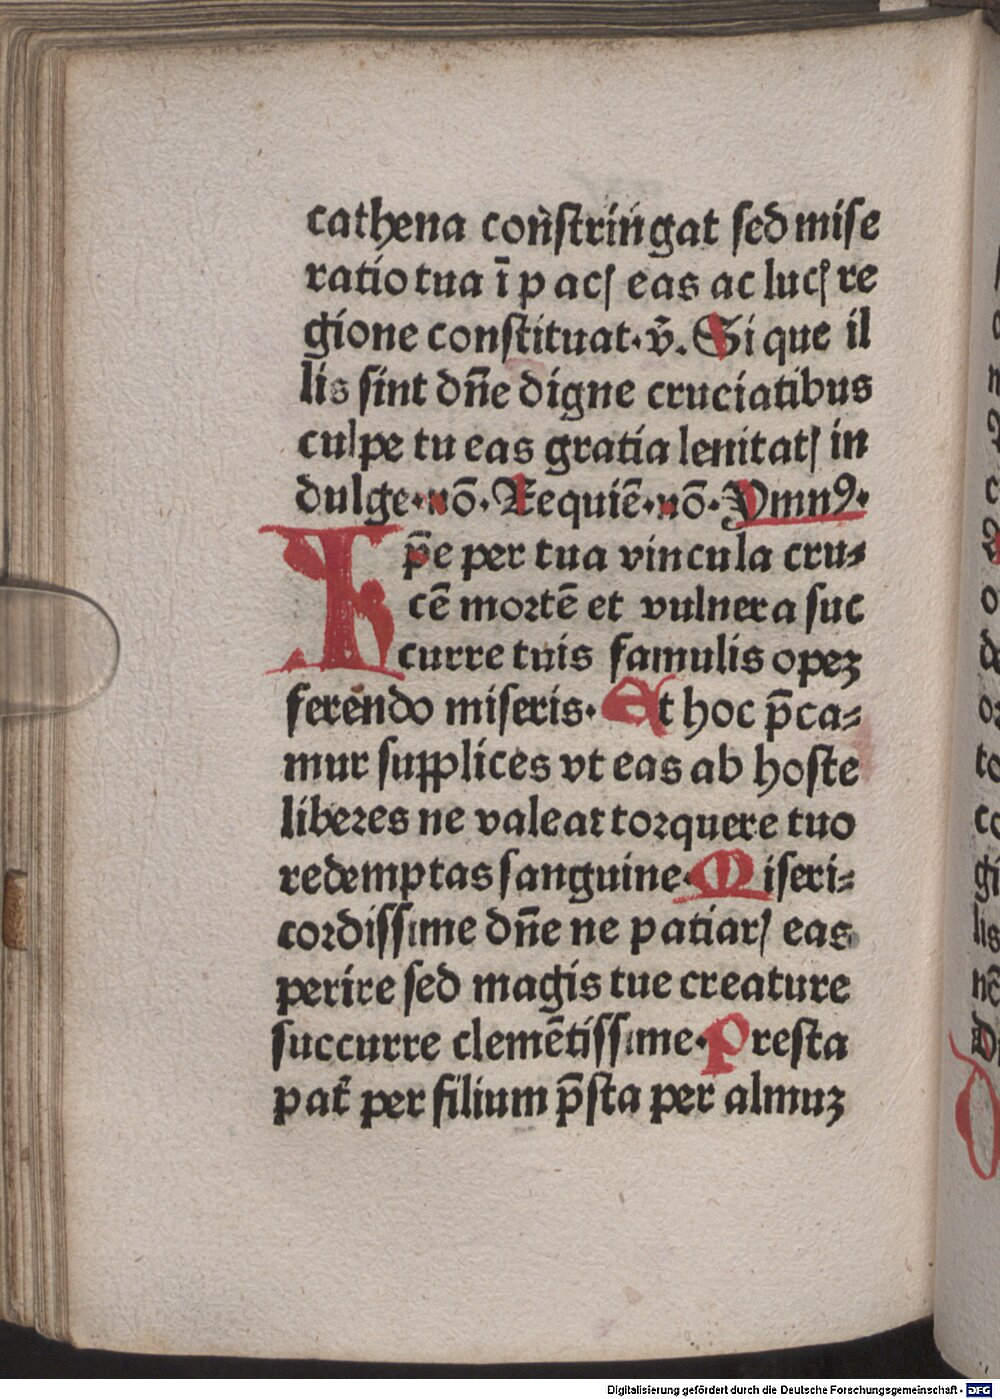 cathena conſtringat ſed miſe
ratio tua ī pacꝭ eas ac lucꝭ re
gione conſtituat. v̄. Si que il
lis ſint dn̄e digne cruciatibus
culpe tu eas gratia lenitatꝭ in
dulge. nō. Requiē. nō. Ymnꝰ.
Xp̄e per tua vincula cru⸗
cē mortē et vulnera ſuc
curre tuis famulis opeꝫ
ferendo miſeris. At hoc p̄ca⸗
mur ſupplices vt eas ab hoſte
liberes ne valeat torquere tuo
redemptas ſanguine. Miſeri⸗
cordiſſime dn̄e ne patiarꝭ eas
perire ſed magis tue creature
ſuccurre clemētiſſime. Preſta
pat̄ per filium p̄ſta per almuꝫ
Digitalisierung gefördert durch die Deutsche Forschungsgemeinschaft - DFG